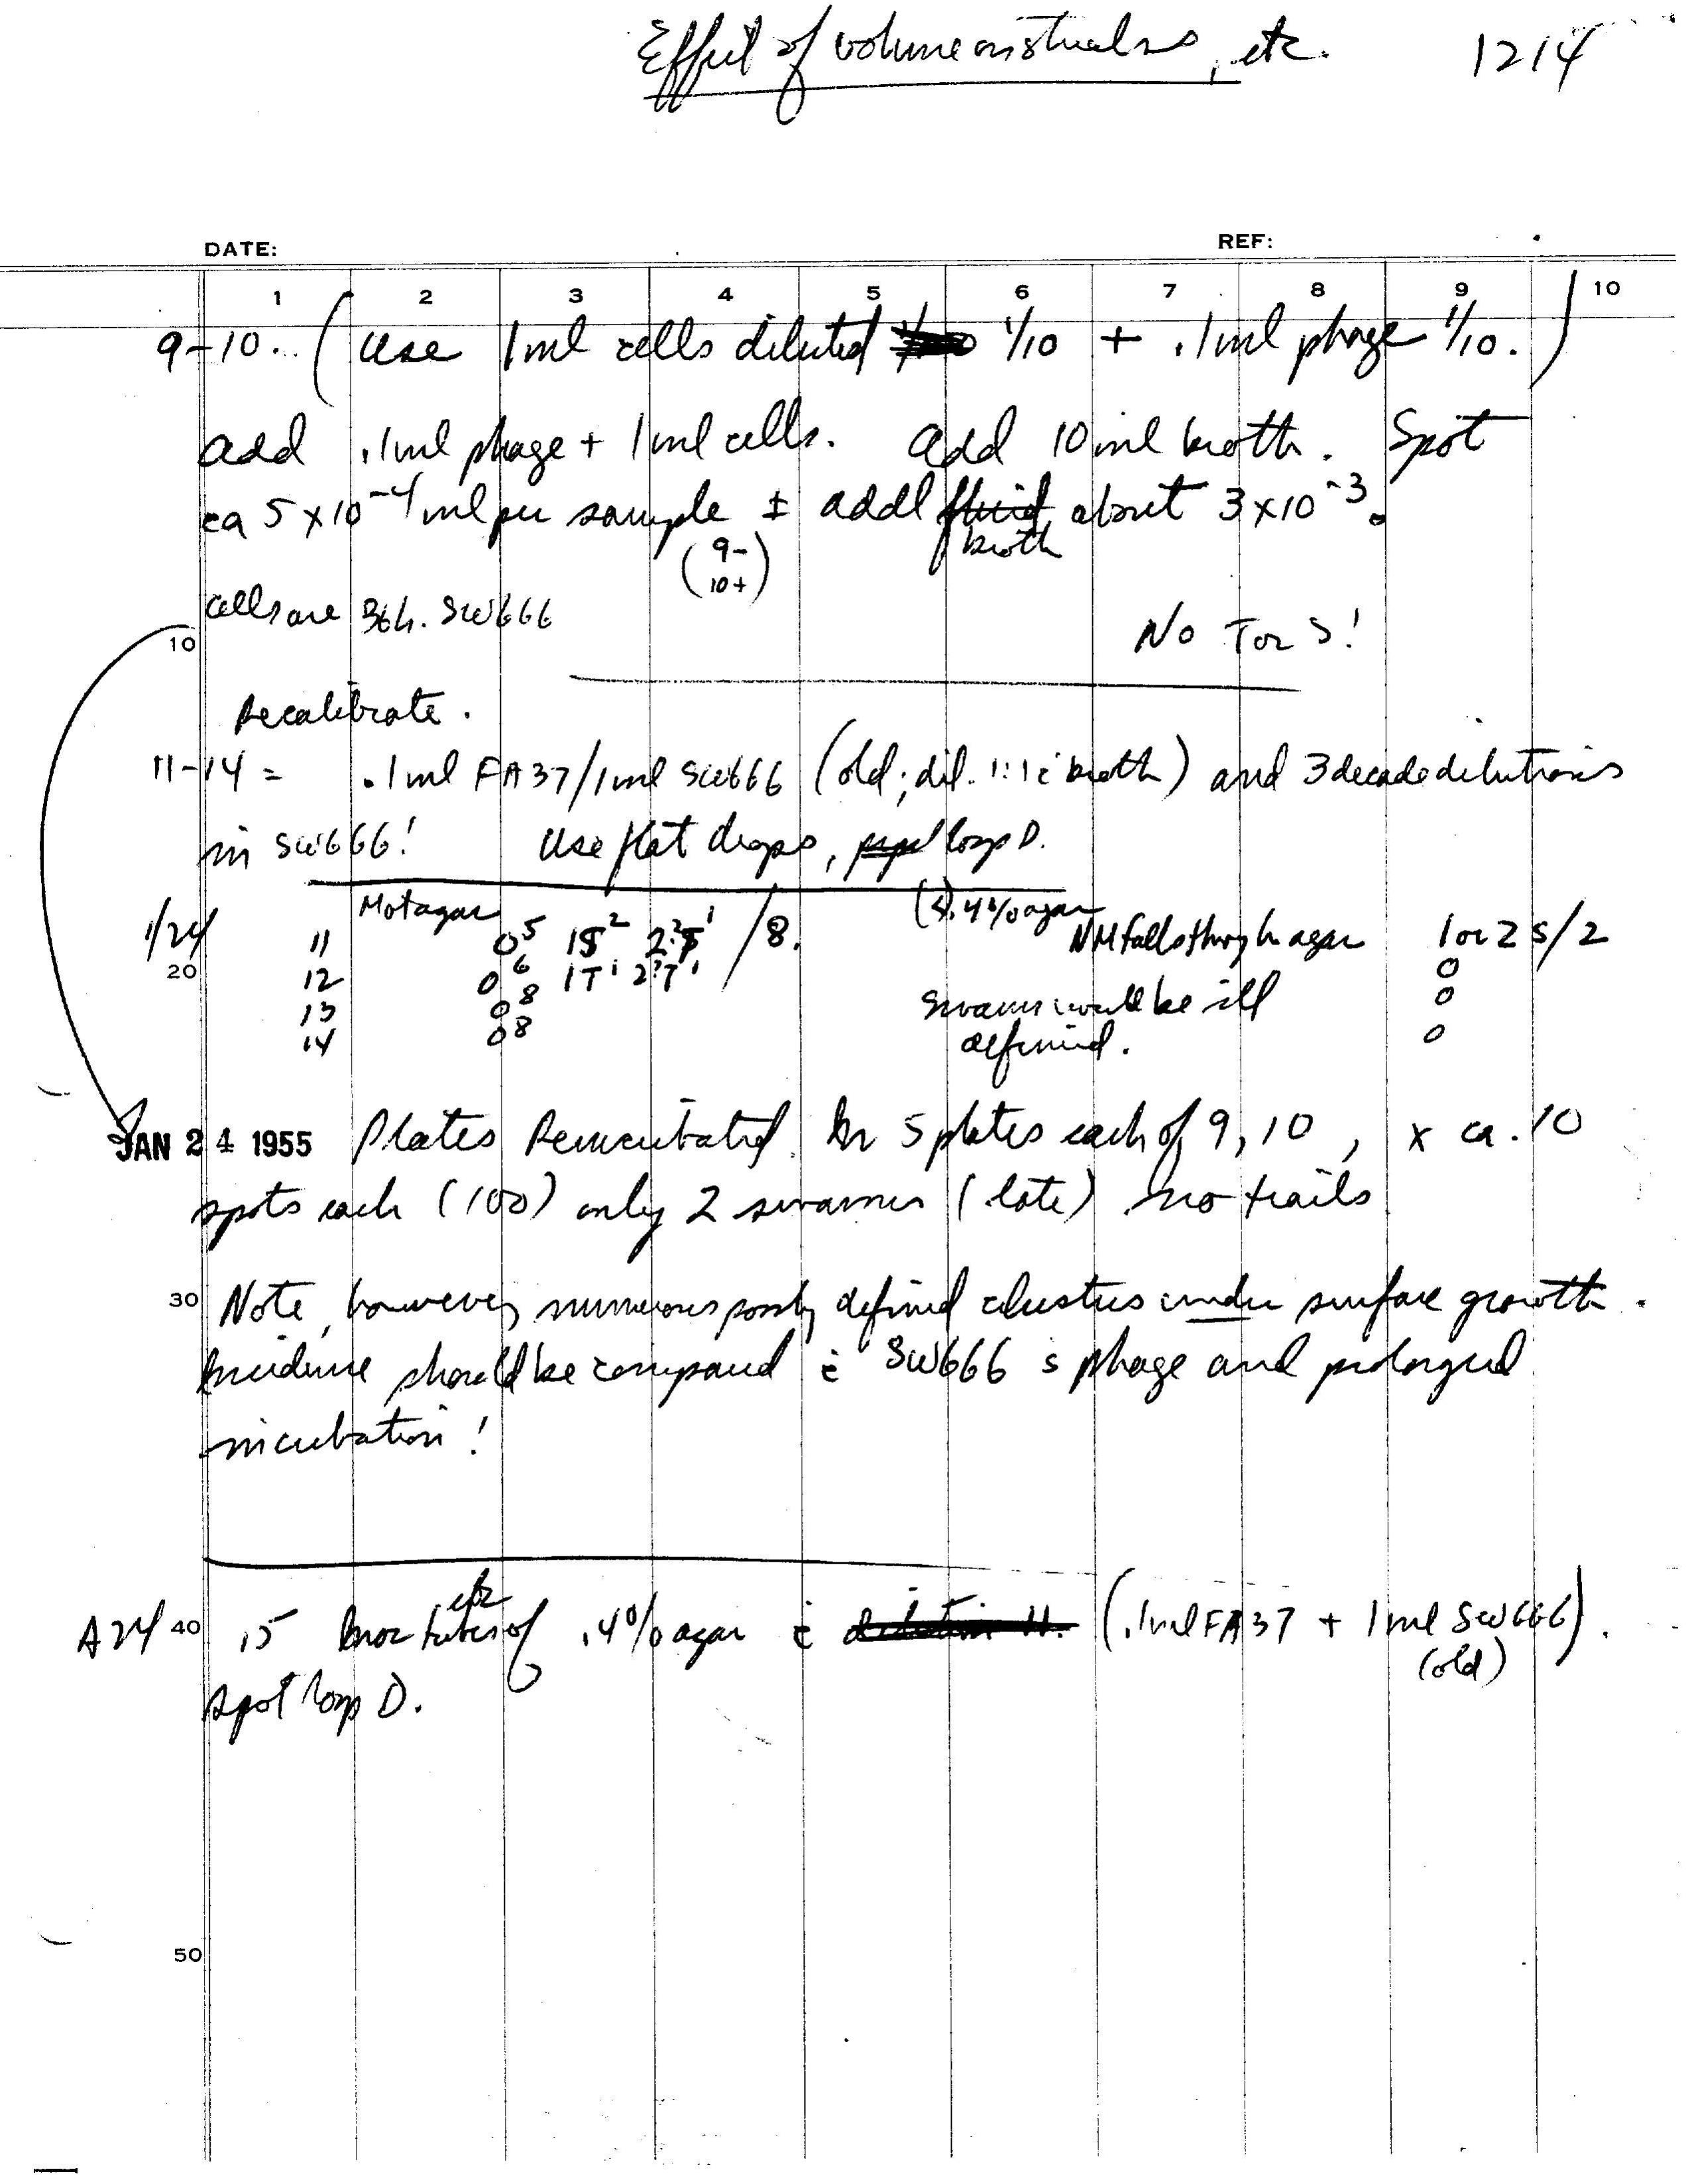 Effect of volume on trails, etc. 1214
DATE: REF:
1 2 3 4 5 6 7 8 9 10
9-10.. (Use 1ml cells diluted 1/10 + .1ml phage 1/10.)
add .1ml phage + 1ml cells. Add 10 ml broth. Spot
ca 5 x 10⁻⁴ ml per sample ± addl fluid about 3 x 10⁻³.
(9- 10+) broth
cells are 36h. SW666
10 No T or S!
Recalibrate.
11-14 = .1ml FA37/1ml SW666 (old; dil. 1:1 c̄ broth) and 3 decade dilutions
in SW666! Use flat drops, loop D.
Motagar .4% agar
1/24 11 0⁵ 1S² 2?S¹ /8. NM falls through agar 1 or 2 S/2
20 12 0⁶ 1T¹ 2?T¹ 0
13 0⁸ swarm would be ill 0
14 0⁸ defined. 0
JAN 24 1955 Plates Reincubated. In 5 plates each of 9, 10, x ca. 10
spots each (100) only 2 swarms (late) no trails
30 Note, however, numerous poorly defined clusters under surface growth.
Incidence should be compared c̄ SW666 s̄ phage and prolonged
incubation!
A24 40 15 tubes of .4% agar c̄ (.1ml FA37 + 1ml SW666).
(old)
Spot loop D.
50